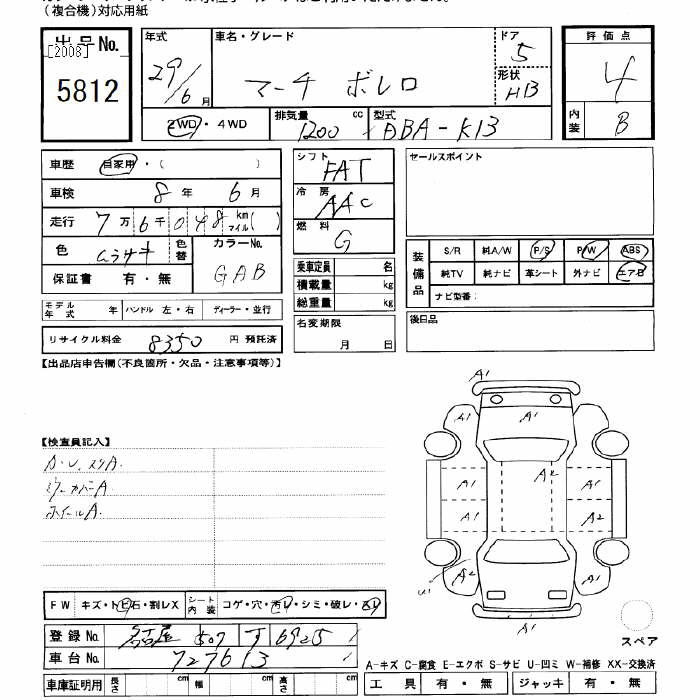 (複合機)対応用紙
出品No.
[2008]
5812
年式
29/6月
車名・グレード
マーチ ボレロ
ドア
5
形状
HB
評価点
4
内装
B
2WD・4WD
排気量 1200 cc
型式 DBA-K13
車歴 自家用・( )
車検 8年 6月
走行 7万6千048 km マイル( )
色 ムラサキ
色替
カラーNo.
GAB
保証書 有・無
モデル年式 年 ハンドル 左・右 ディーラー・並行
リサイクル料金 8350 円 預託済
シフト
FAT
冷房
AAC
燃料
G
乗車定員 名
積載量 kg
総重量 kg
名変期限
月 日
セールスポイント
装備品
S/R 純A/W P/S P/W ABS
純TV 純ナビ 革シート 外ナビ エアB
ナビ型番:
後日品
【出品店申告欄(不良箇所・欠品・注意事項等)】
【検査員記入】
A・U、スリA.
ミラーカバーA
ホイールA.
A1
A1
A1
A1
A2
A1
A1
A1
A2
A2
U1
A1
A1
FW キズ・トビ石・割レX シート内装 コゲ・穴・汚レ・シミ・破レ・スレ
登録No. 名古屋 507 す 6925
車台No. 727613
車庫証明用 長さ cm 幅 cm 高さ cm
スペア
A-キズ C-腐食 E-エクボ S-サビ U-凹ミ W-補修 XX-交換済
工具 有・無 ジャッキ 有・無